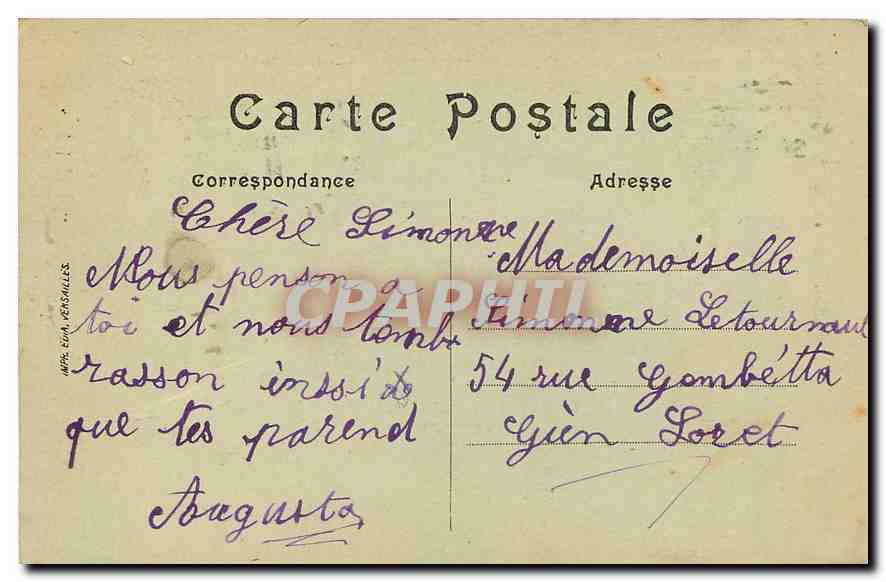 Carte Postale
Correspondance
Chère Simonne
Nous penson a
toi et nous tembr
rasson inssi
que tes parend
Augusta
Adresse
Mademoiselle
Simonne Letournaul
54 rue Gambétta
Gièn Loret
IMPR. EDIA, VERSAILLES.
CPAPHIL